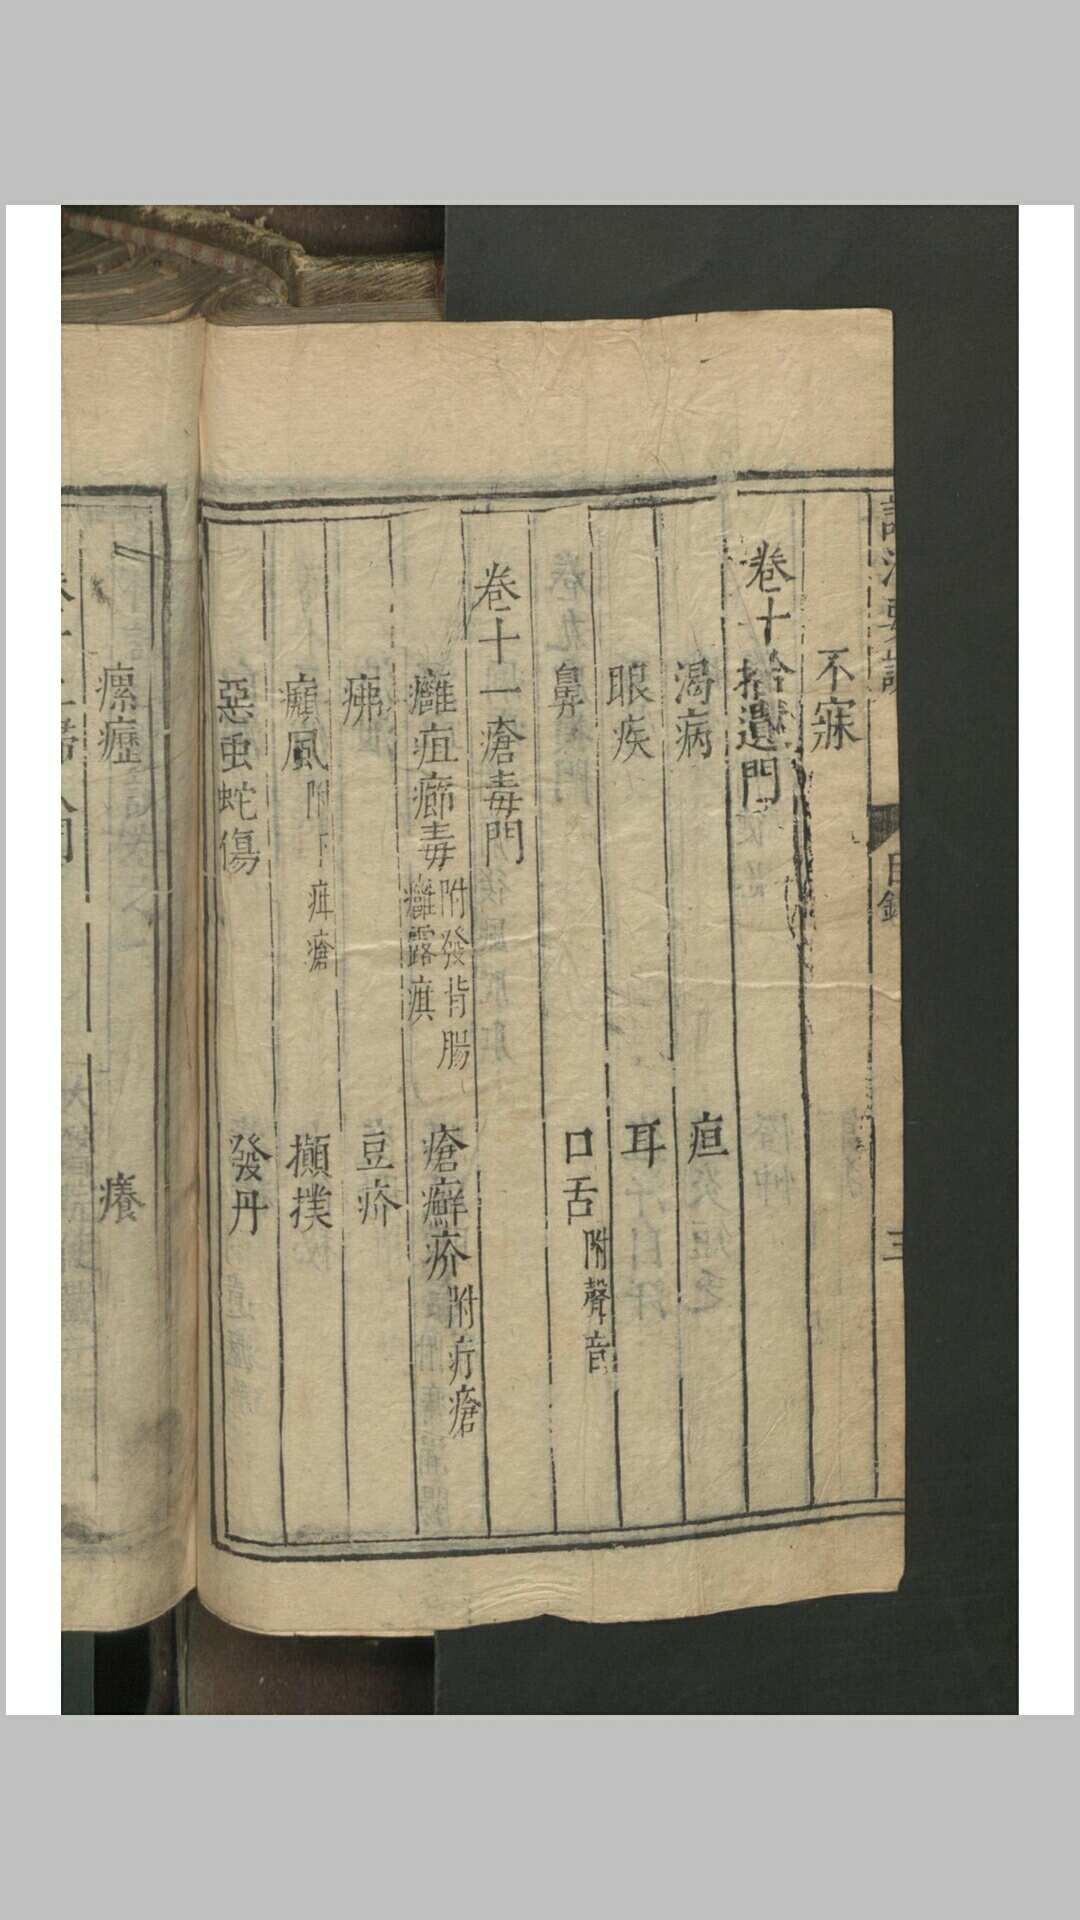 目錄
三
不寐
卷十 拾遺門
渴病 疸
眼疾 耳
鼻 口舌 附聲音
卷十一 瘡毒門
癰疽癤毒 附發背腸癰 瘡癬疥 附疔瘡
痱 豆疥
癲風 附下疰瘡 攧撲
惡虫蛇傷 發丹
瘰癧 癢